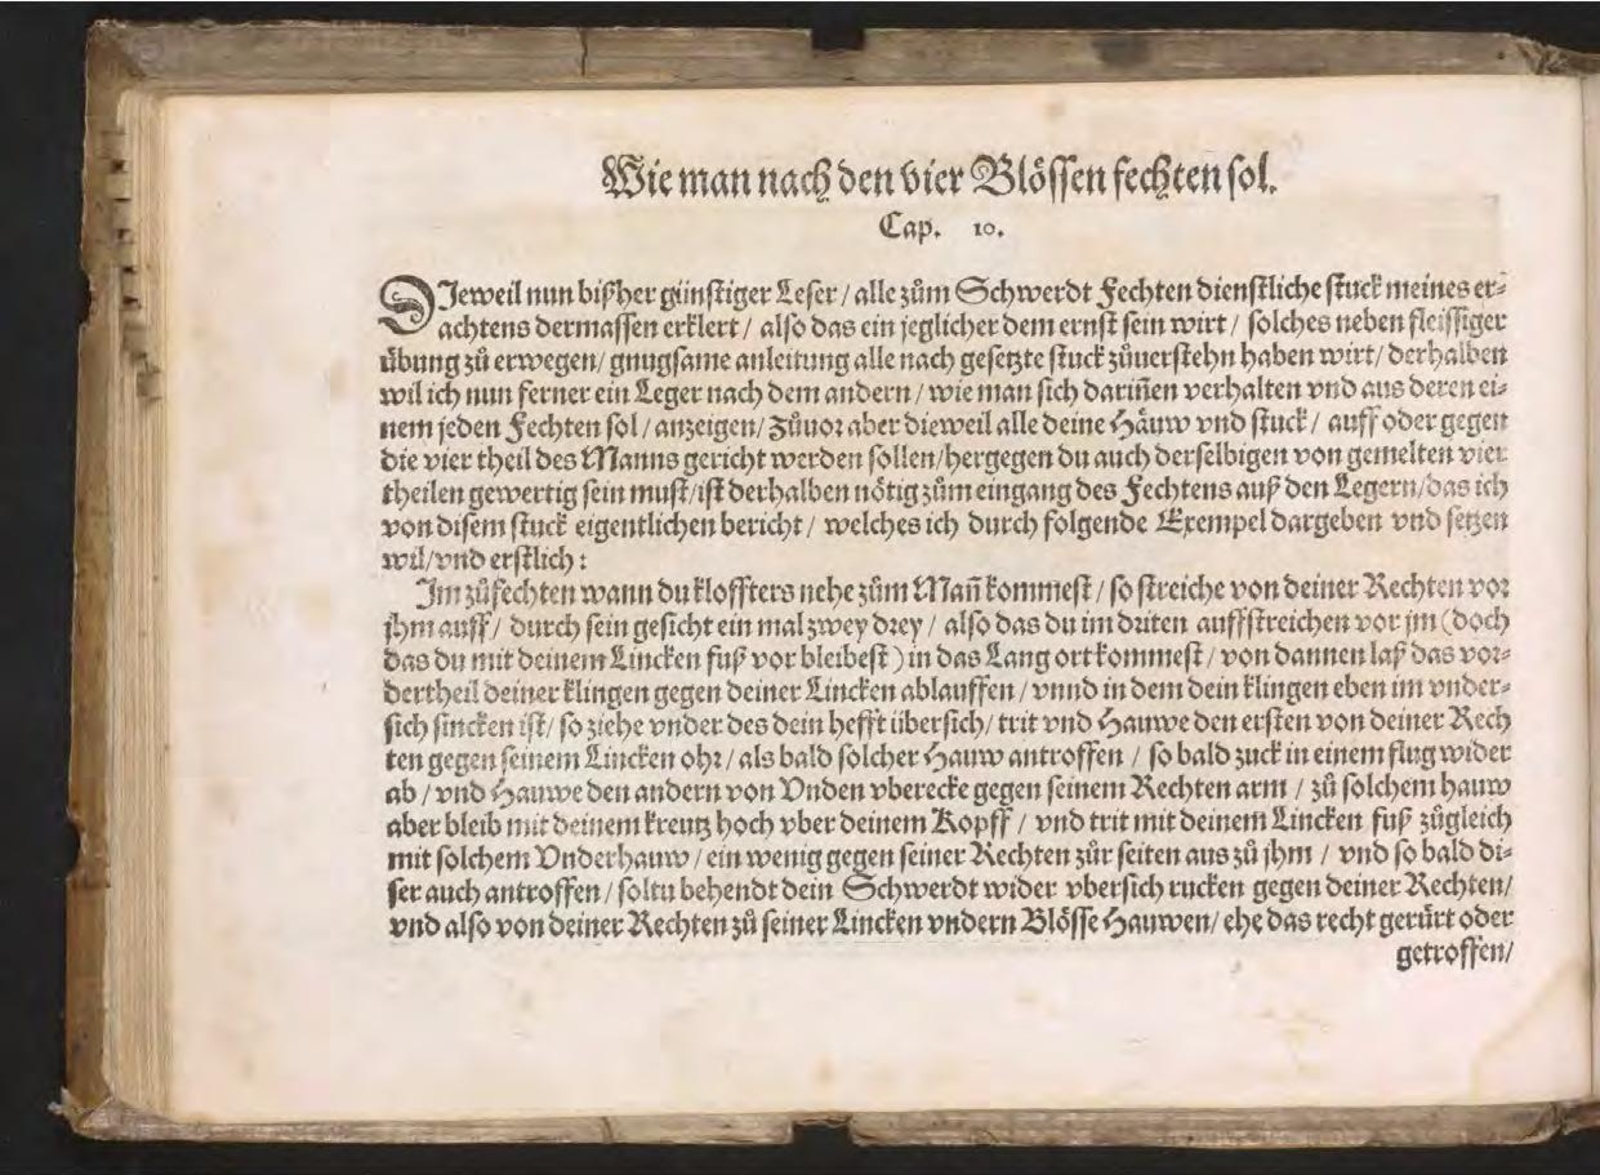 Wie man nach den vier Blössen fechten sol.
Cap. 10.
DJeweil nun bißher günstiger Leser / alle zům Schwerdt Fechten dienstliche stuck meines er-
achtens dermassen erklert / also das ein jeglicher dem ernst sein wirt / solches neben fleissiger
übung zů erwegen / gnugsame anleitung alle nach gesetzte stuck zůuerstehn haben wirt / derhalben
wil ich nun ferner ein Leger nach dem andern / wie man sich dariñen verhalten vnd aus deren ei-
nem jeden Fechten sol / anzeigen / Zůuor aber dieweil alle deine Häuw vnd stuck / auff oder gegen
die vier theil des Manns gericht werden sollen / hergegen du auch derselbigen von gemelten vier
theilen gewertig sein must / ist derhalben nötig zům eingang des Fechtens auß den Legern / das ich
von disem stuck eigentlichen bericht / welches ich durch folgende Exempel dargeben vnd setzen
wil / vnd erstlich :
Im zůfechten wann du kloffters nehe zům Mañ kommest / so streiche von deiner Rechten vor
jhm auff / durch sein gesicht ein mal zwey drey / also das du im driten auffstreichen vor jm (doch
das du mit deinem Lincken fuß vor bleibest ) in das Lang ort kommest / von dannen laß das vor-
dertheil deiner klingen gegen deiner Lincken ablauffen / vnnd in dem dein klingen eben im vnder-
sich sincken ist / so ziehe vnder des dein hefft übersich / trit vnd Hauwe den ersten von deiner Rech
ten gegen seinem Lincken ohr / als bald solcher Hauw antroffen / so bald zuck in einem flug wider
ab / vnd Hauwe den andern von Vnden vberecke gegen seinem Rechten arm / zů solchem hauw
aber bleib mit deinem kreutz hoch vber deinem Kopff / vnd trit mit deinem Lincken fuß zůgleich
mit solchem Vnderhauw / ein wenig gegen seiner Rechten zůr seiten aus zů jhm / vnd so bald di-
ser auch antroffen / soltu behendt dein Schwerdt wider vbersich rucken gegen deiner Rechten /
vnd also von deiner Rechten zů seiner Lincken vndern Blösse Hauwen / ehe das recht gerürt oder
getroffen /